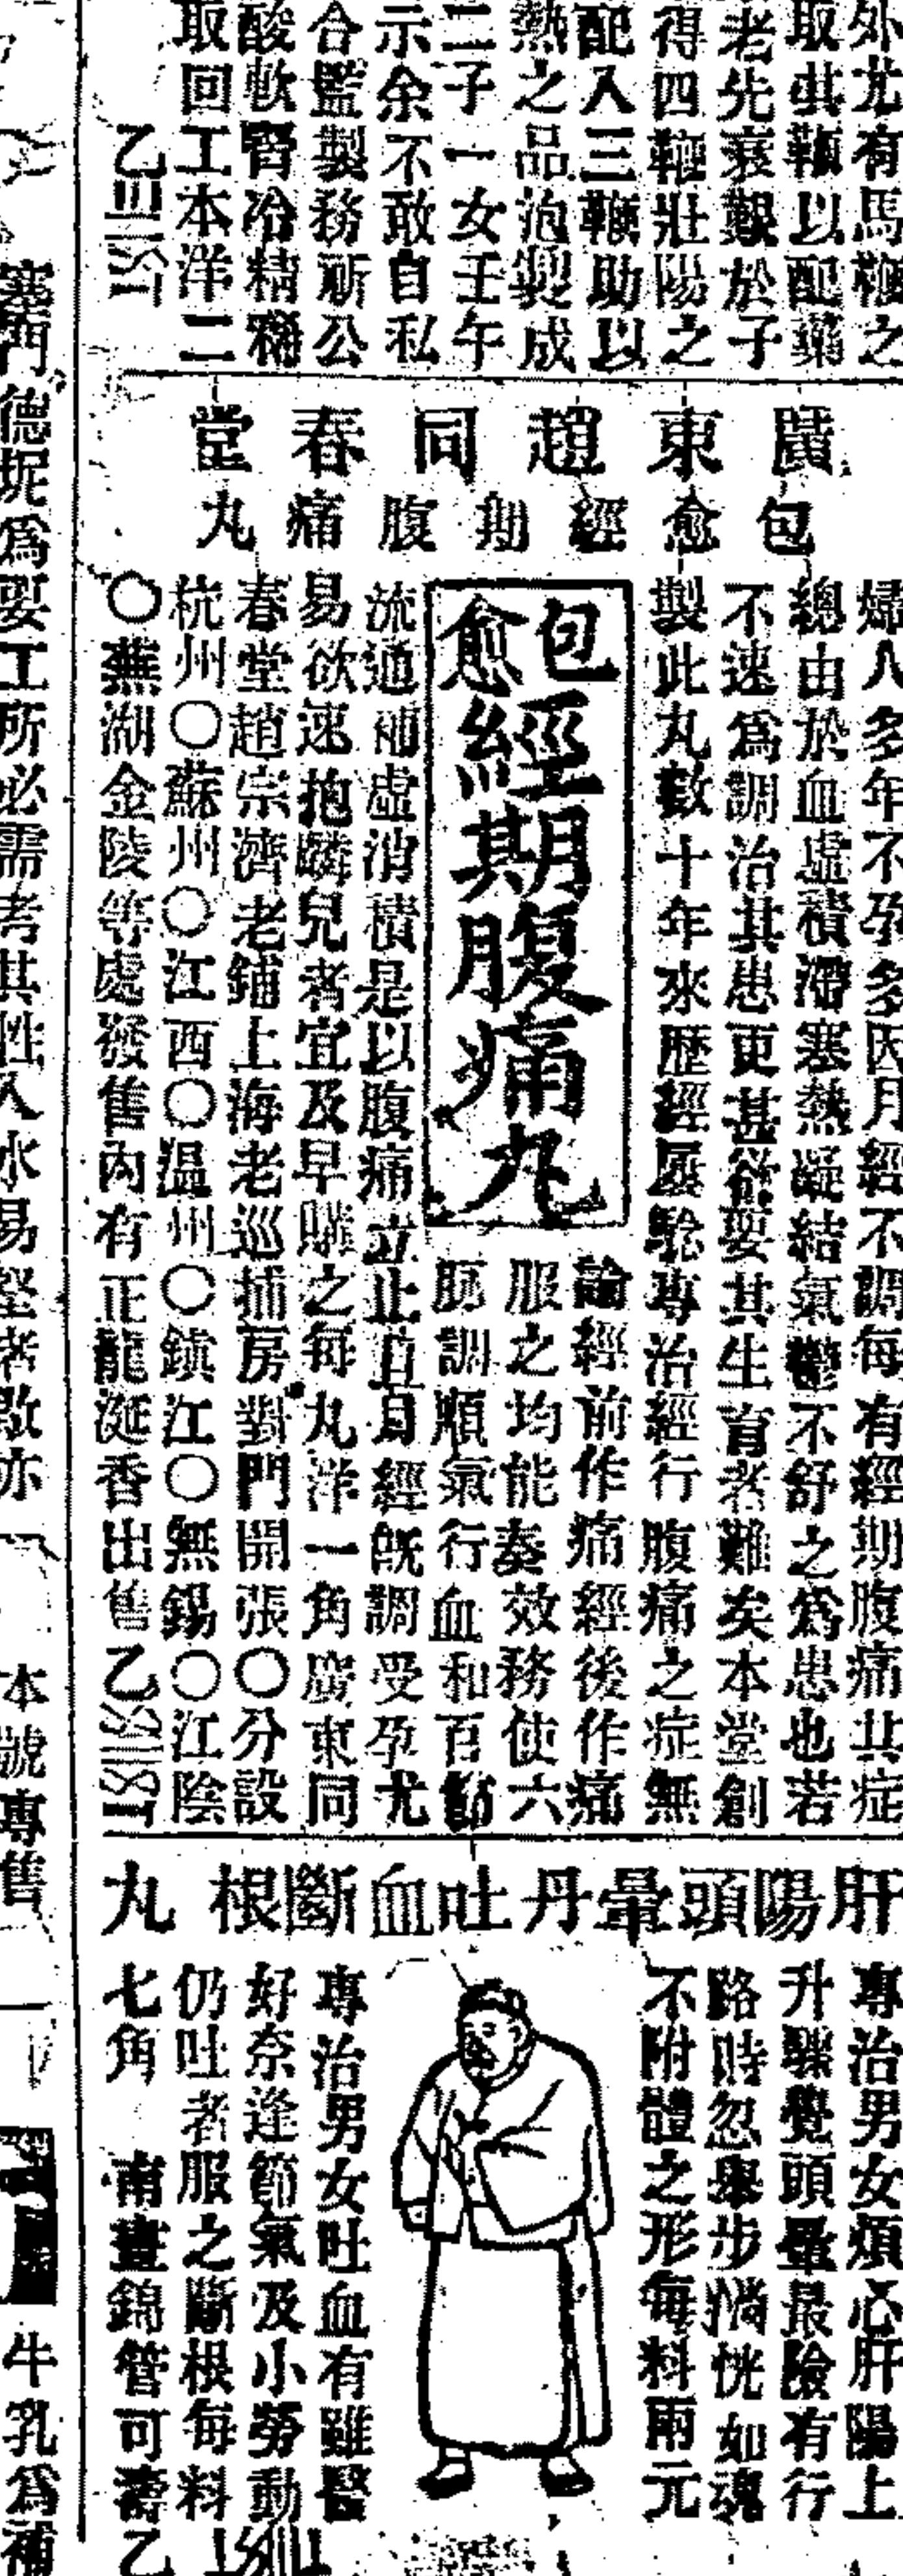 外尤有馬鞭之
取其鞭以配藥
老先衰艱於子
得四鞭壯陽之
配入三鞭助以
熱之品泡製成
二子一女壬午
示余不敢自私
合監製務祈公
酸軟腎冷精稀
取回工本洋二
乙
廣東趙同春堂
包愈經期腹痛丸
婦人多年不孕多因月經不調每有經期腹痛其症
總由於血虛積滯寒熱凝結氣鬱不舒之為患也若
不速為調治其患更甚欲要其生育者難矣本堂創
製此丸數十年來歷經屢驗專治經行腹痛之症無
論經前作痛經後作痛
服之均能奏效務使六
脈調順氣行血和百節
包愈經期腹痛丸
流通補虛消積是以腹痛立止直且經既調受孕尤
易欲速抱麟兒者宜及早購之每丸洋一角廣東同
春堂趙宗濟老鋪上海老巡捕房對門開張〇分設
杭州〇蘇州〇江西〇溫州〇鎮江〇無錫〇江陰
〇蕪湖金陵等處發售內有正龍涎香出售乙
肝陽頭暈丹吐血斷根丸
專治男女煩心肝陽上
升驟覺頭暈最險有行
路時忽舉步惝恍如魂
不附體之形每料兩元
專治男女吐血有雖醫
好奈逢節氣及小勞動
仍吐者服之斷根每料
七角 南晝錦管可濤
乙
塞門德坭為要工所必需考其性入水易堅者
本號專售
牛乳為補